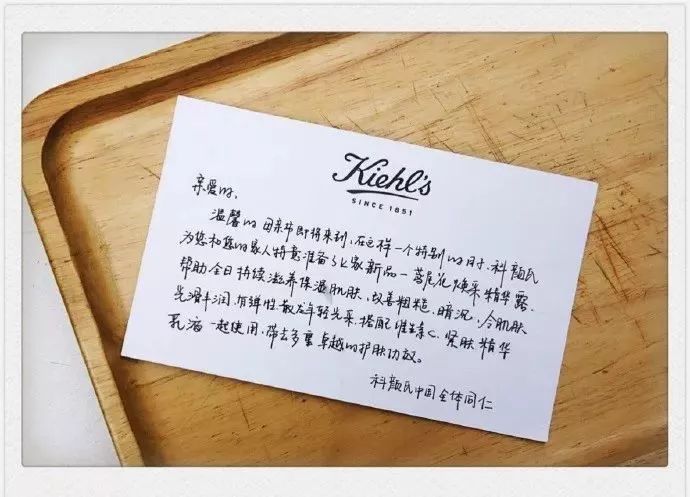 Kiehl's
SINCE 1851
亲爱的,
温馨的母亲节即将来到,在这样一个特别的日子,科颜氏
为您和您的家人特意准备了此家新品—鸢尾花焕采精华露,
帮助全日持续滋养保湿肌肤,改善粗糙、暗沉,令肌肤
光滑丰润,有弹性散发年轻光采.搭配维生素C紧肤精华
乳液一起使用,带去多重卓越的护肤功效。
科颜氏中国全体同仁